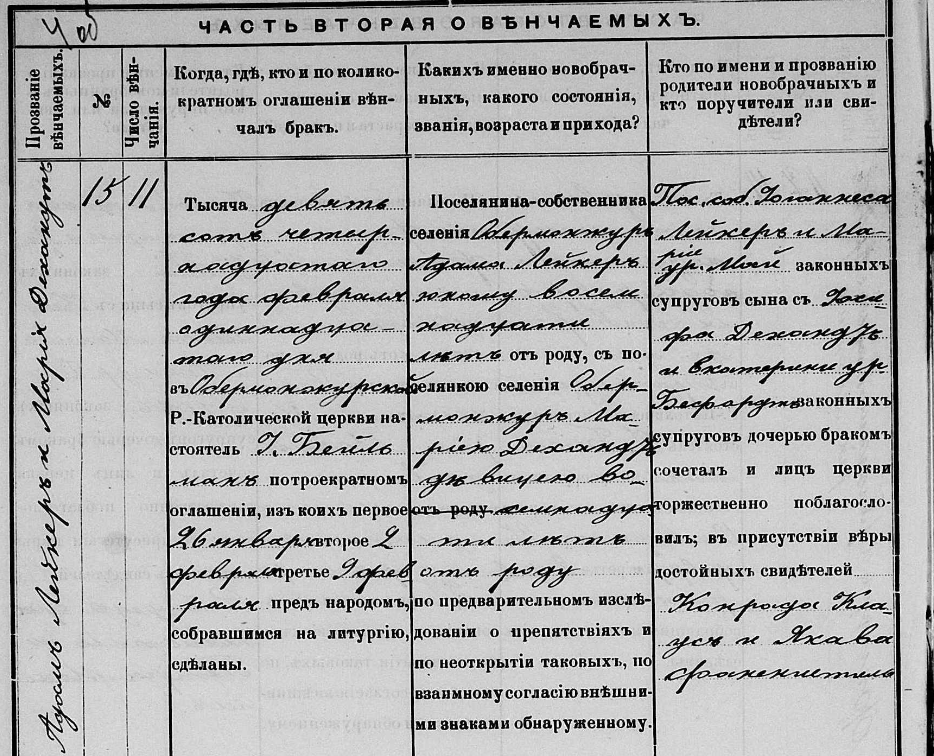 ЧАСТЬ ВТОРАЯ О ВѢНЧАЕМЫХЪ.
Прозваніе вѣнчаемыхъ.
№
Число вѣн-
чанія.
Когда, гдѣ, кто и по колико-
кратномъ оглашеніи вѣн-
чалъ бракъ.
Какихъ именно новобрач-
ныхъ, какого состоянія,
званія, возраста и прихода?
Кто по имени и прозванію
родители новобрачныхъ и
кто поручители или сви-
дѣтели?
Адамъ Лейкеръ и Марія Дехандтъ
15
11
Тысяча девять
сотъ четыр-
надцатаго
года февраля
одиннадца-
таго дня
въ Обермонжурской
Р.-Католической церкви на-
стоятель І. Бейль
манъ потроекратномъ
оглашеніи, изъ коихъ первое
26 января второе 2
февраля третье 9 фев
раля предъ народомъ,
собравшимся на литургію,
сдѣланы.
Поселянина-собственника
селенія Обермонжуръ
Адама Лейкеръ
юношу восем
надцати
лѣтъ отъ роду, съ по-
селянкою селенія Обер-
монжуръ Ма-
ріею Дехандтъ
дѣвицею
отъ роду семнадца
ти лѣтъ
отъ роду
по предварительномъ изслѣ-
дованіи о препятствіяхъ и
по неоткрытіи таковыхъ, по
взаимному согласію внѣшни-
ми знаками обнаруженному.
Пос. соб. Іоганнеса
Лейкеръ и Ма-
ріи
ур. Май законныхъ
супруговъ сына съ Іоси-
фа Дехандтъ
и Екатерины ур
законныхъ
супруговъ дочерью бракомъ
сочеталъ и лицъ церкви
торжественно поблагосло-
вилъ; въ присутствіи вѣры
достойныхъ свидѣтелей
Конрада Кла-
усъ и Якова